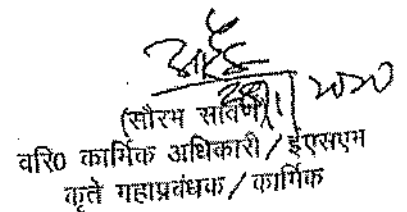 2020
(सौरभ सावर्ण)
वरि0 कार्मिक अधिकारी / ईएसएम
कृते महाप्रबंधक / कार्मिक